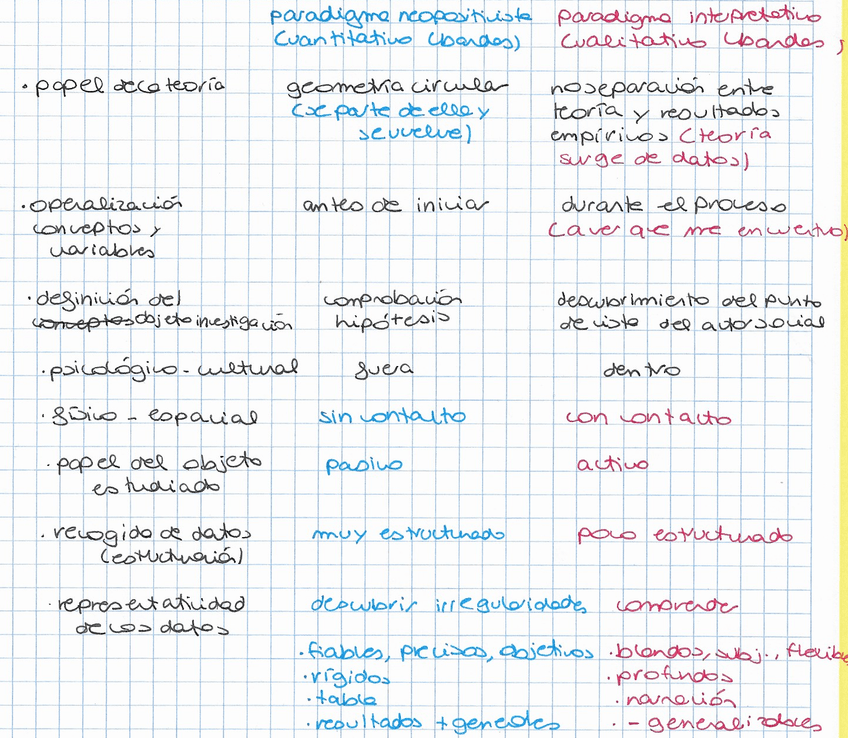 paradigma neopositivista paradigma interpretativo
Cuantitativo (bandas) Cualitativo (bandas)
· papel de la teoría geometría circular no separación entre
(se parte de ella y teoría y resultados
se vuelve) empíricos (teoría
surge de datos)
· operalización antes de iniciar durante el proceso
conceptos y (a ver que me encuentro)
variables
· definición del comprobación descubrimiento del punto
conceptos objeto investigación hipótesis de vista del autor social
· psicológico - cultural fuera dentro
· físico - espacial sin contacto con contacto
· papel del objeto pasivo activo
estudiado
· recogida de datos muy estructurado poco estructurado
(estructuración)
· representatividad descubrir irregularidades comprender
de los datos
· fiables, precisos, objetivos · blandos, subj., flexible
· rígidos · profundos
· tabla · narración
· resultados + generales · - generalizables